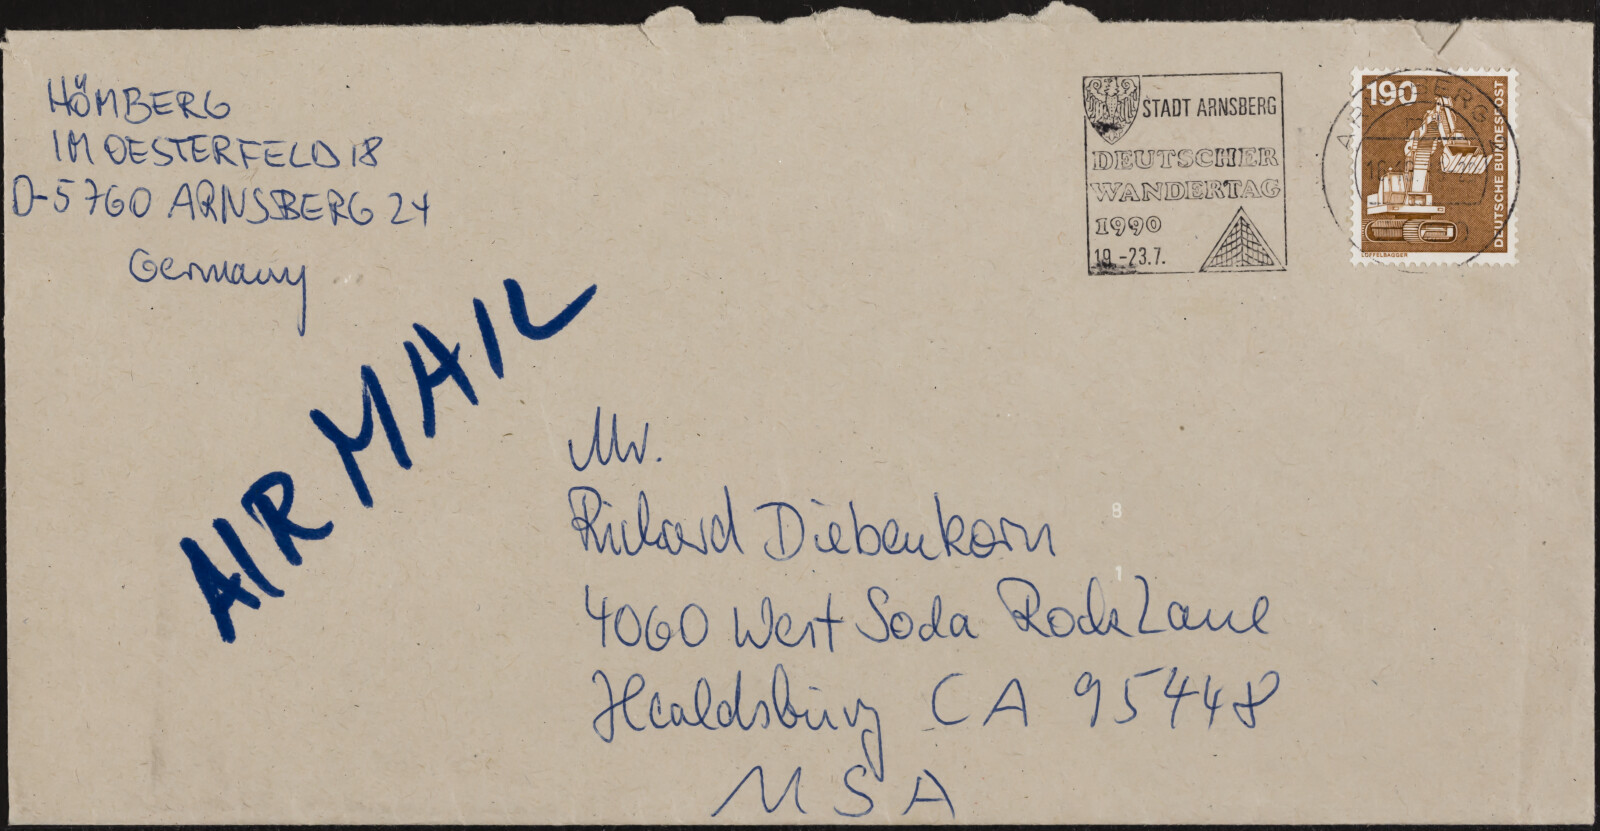 HÖMBERG
IM OESTERFELD 18
D-5760 ARNSBERG 24
Germany
AIR MAIL
STADT ARNSBERG
DEUTSCHER
WANDERTAG
1990
19.-23.7.
190
DEUTSCHE BUNDESPOST
LÖFFELBAGGER
Mr.
Richard Diebenkorn
4060 West Soda Rock Lane
Healdsburg CA 95448
USA
8
1